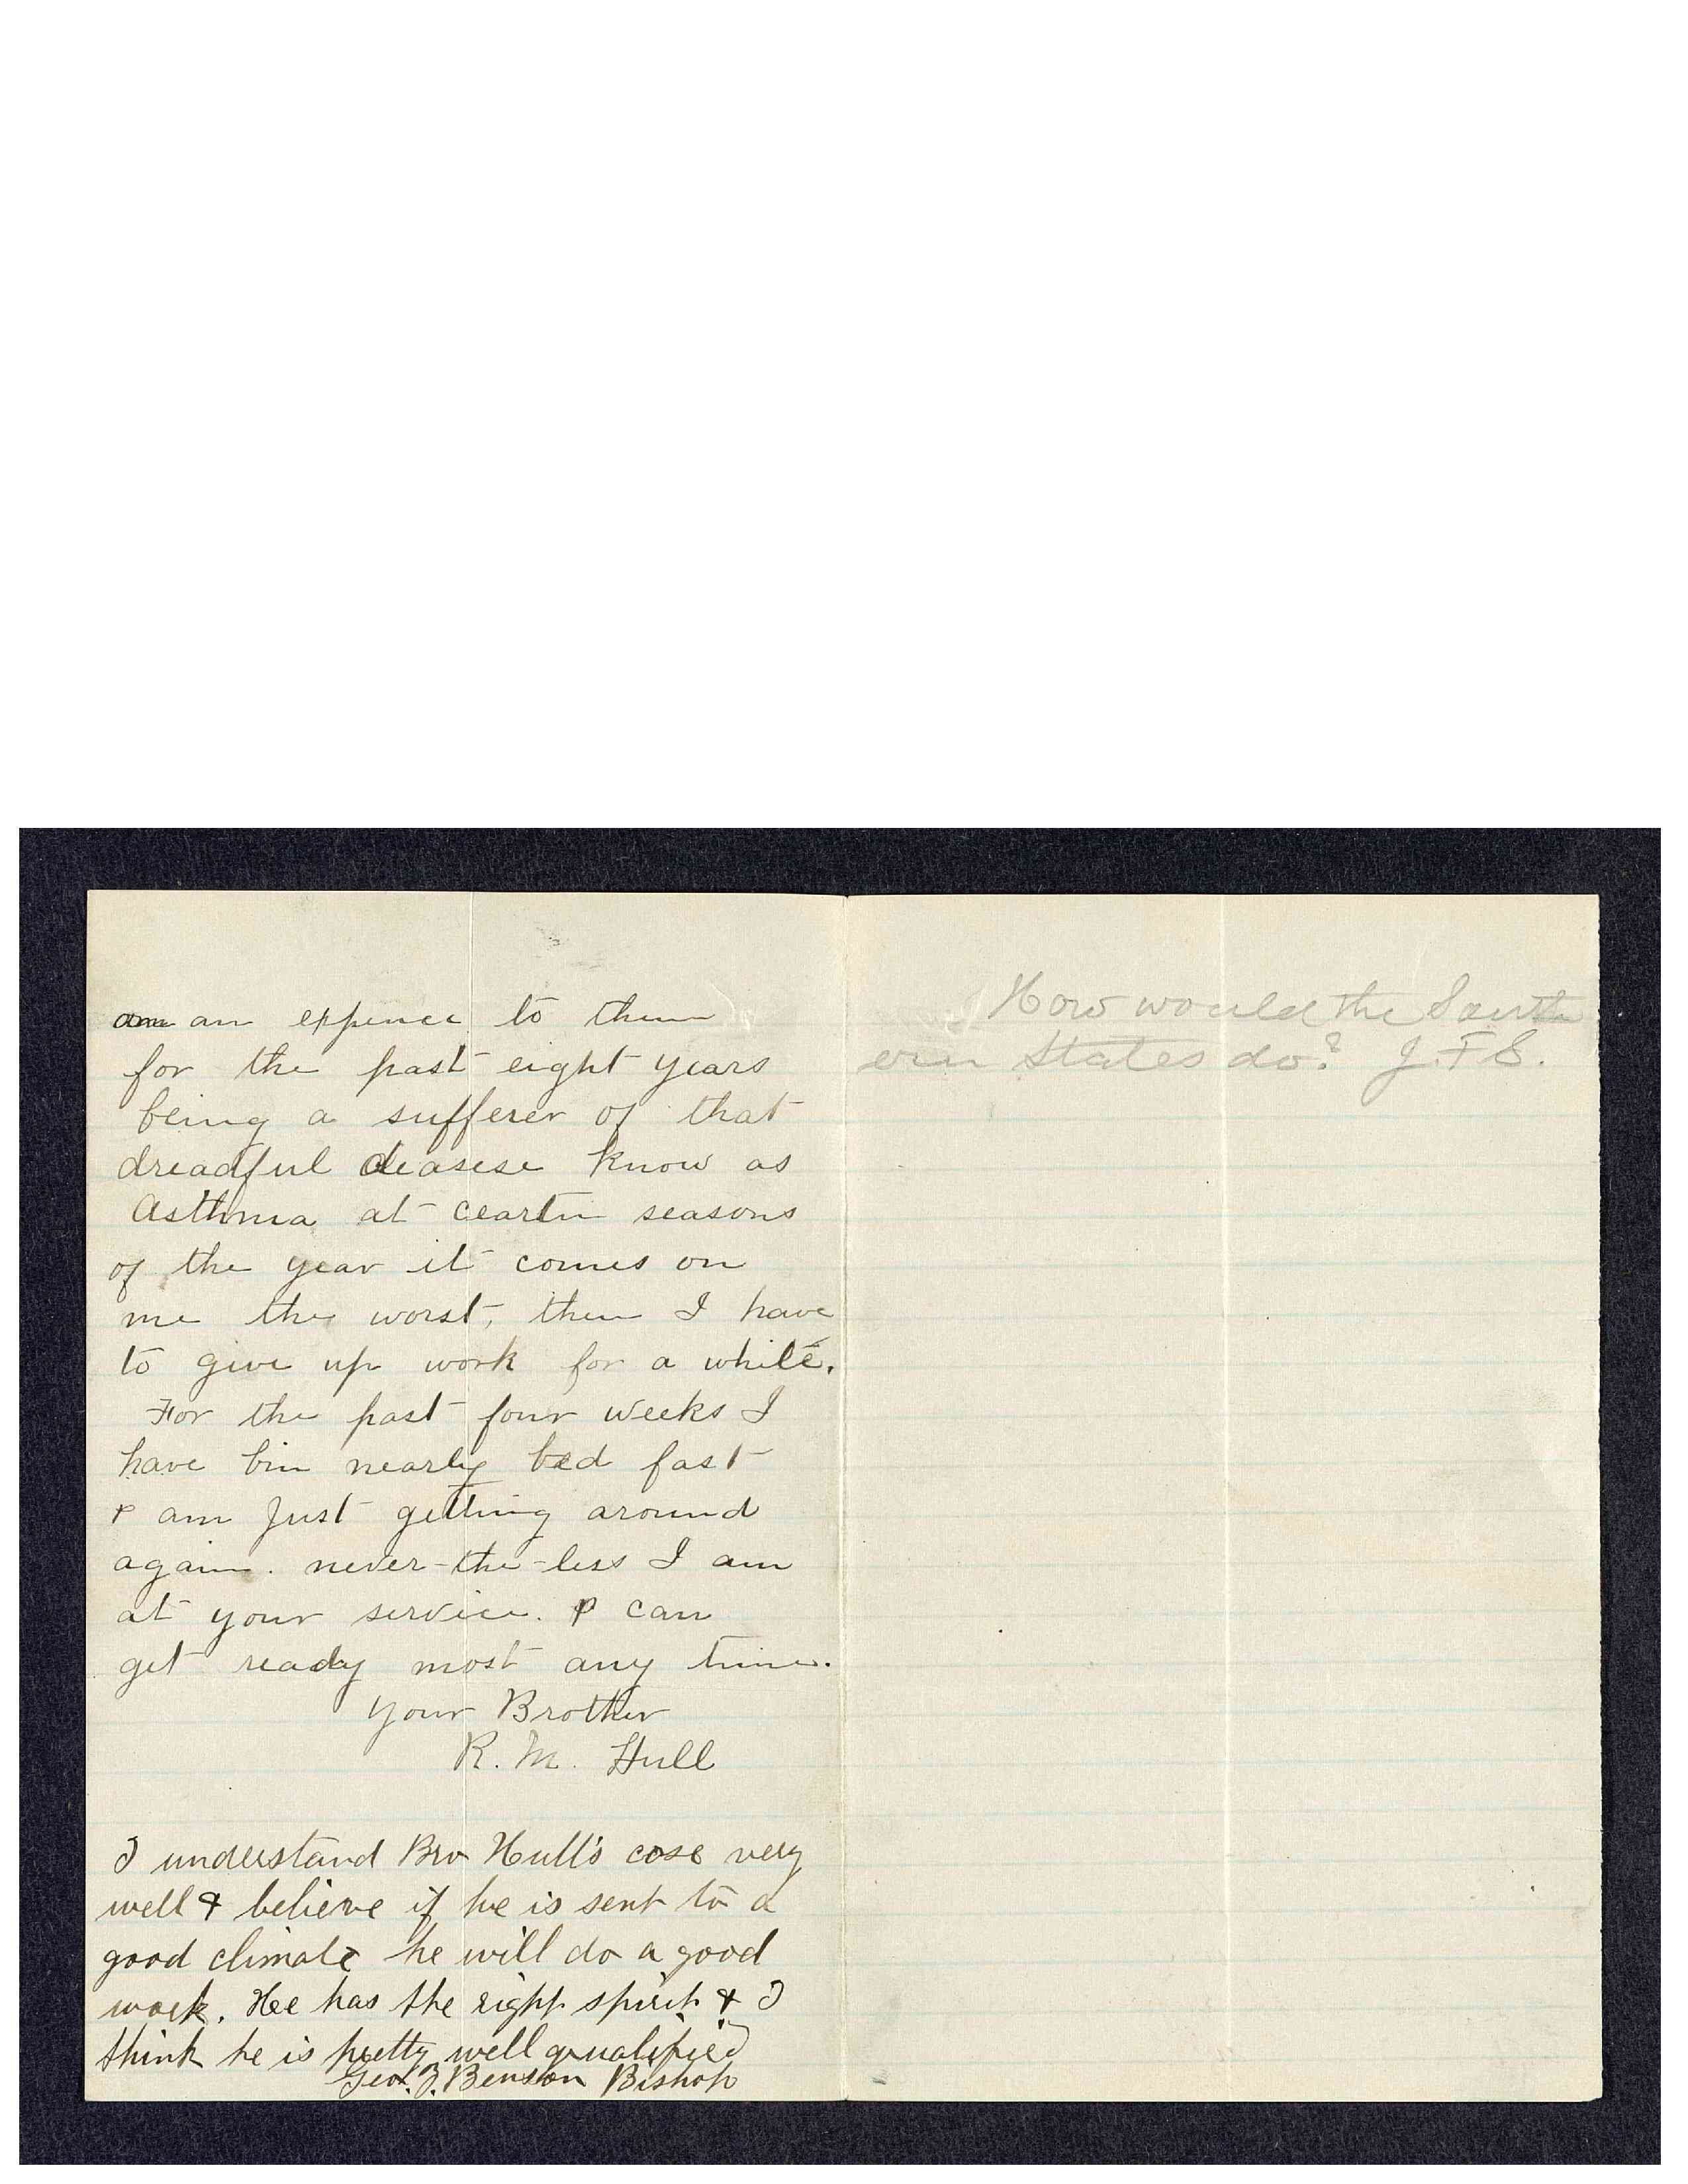 am an expence to them
for the past eight years
being a sufferer of that
dreadful deasese know as
Asthma at ceartin seasons
of the year it comes on
me the worst, then I have
to give up work for a while.
For the past four weeks I
have bin nearly bed fast
& am just getting around
again. never-the-less I am
at your service. & can
get ready most any time.
Your Brother
R. M. Hull
I understand Bro Hull's case very
well & believe if he is sent to a
good climate he will do a good
work. Hee has the right spirit & I
think he is pretty well qualified
Geo. T. Benson Bishop
How would the South
ern States do? J. F. S.